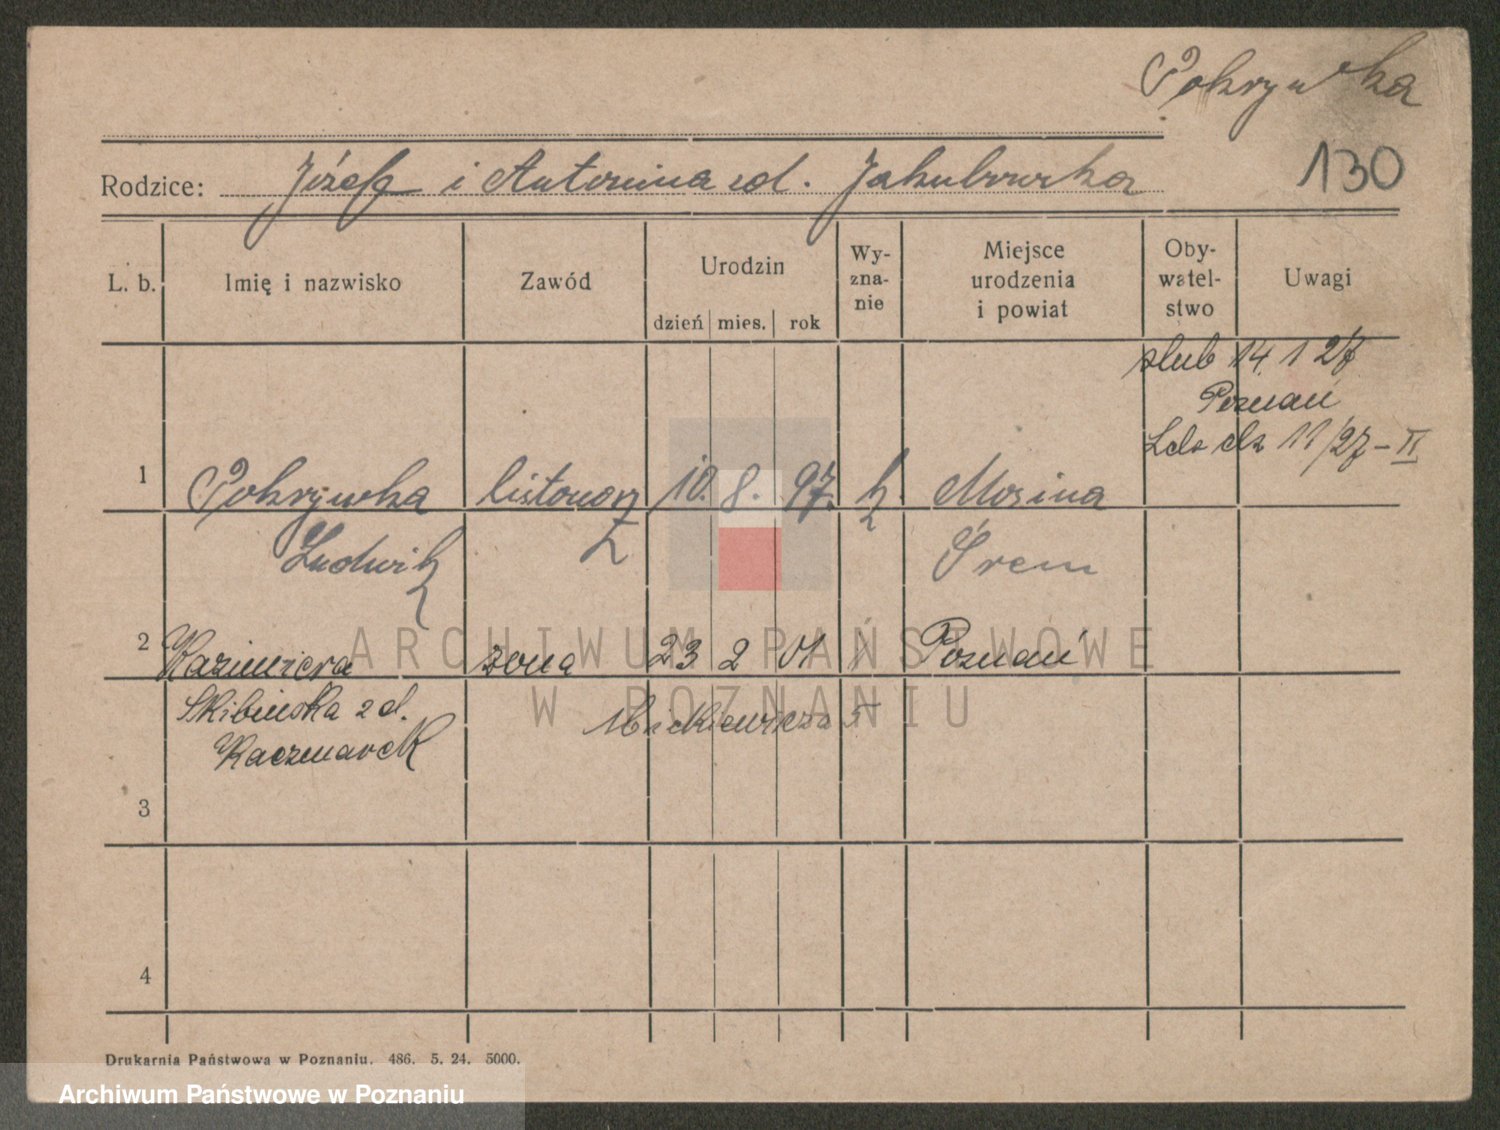 Pokrywka
130
Rodzice: Józef i Antonina zd. Jakubowska
L. b. Imię i nazwisko Zawód Urodzin Wy-zna-nie Miejsce urodzenia i powiat Oby-watel-stwo Uwagi
dzień mies. rok
ślub 14. 1 27
Poznań
11/27 - II
1 Pokrywka listonosz 10. 8. 97. k. Mosina
Ludwik Śrem
2 Kazimiera żona 23 2 01 Poznań
Skibińska zd. Mickiewicza
Kaczmarek
3
4
Drukarnia Państwowa w Poznaniu. 486. 5. 24. 5000.
ARCHIWUM PAŃSTWOWE
W POZNANIU
Archiwum Państwowe w Poznaniu